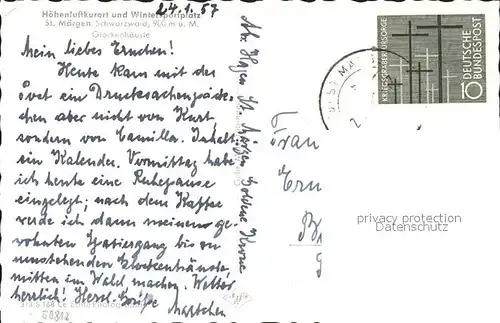 24.1.57
Höhenluftkurort und Wintersportplatz
St. Märgen Schwarzwald, 900 m ü. M.
Glockenhäusle
Mein liebes Ernchen!
Heute kam mit der
Post ein Drucksachenpäck-
chen aber nicht von Kurt
sondern von Camilla. Inhalt:
ein Kalender. Vormittag habe
ich heute eine Ruhepause
eingelegt; nach dem Kaffee
werde ich dann meinen ge-
wohnten Spaziergang bis zu
umstehenden Glockenhäusle,
mitten im Wald machen. Wetter
herrlich! Herzl. Grüße
Abs. Hagen St. Märgen Goldene Krone
KRIEGSGRÄBERFÜRSORGE
DEUTSCHE
BUNDESPOST
10
Frau
Ern
privacy protection
Datenschutz